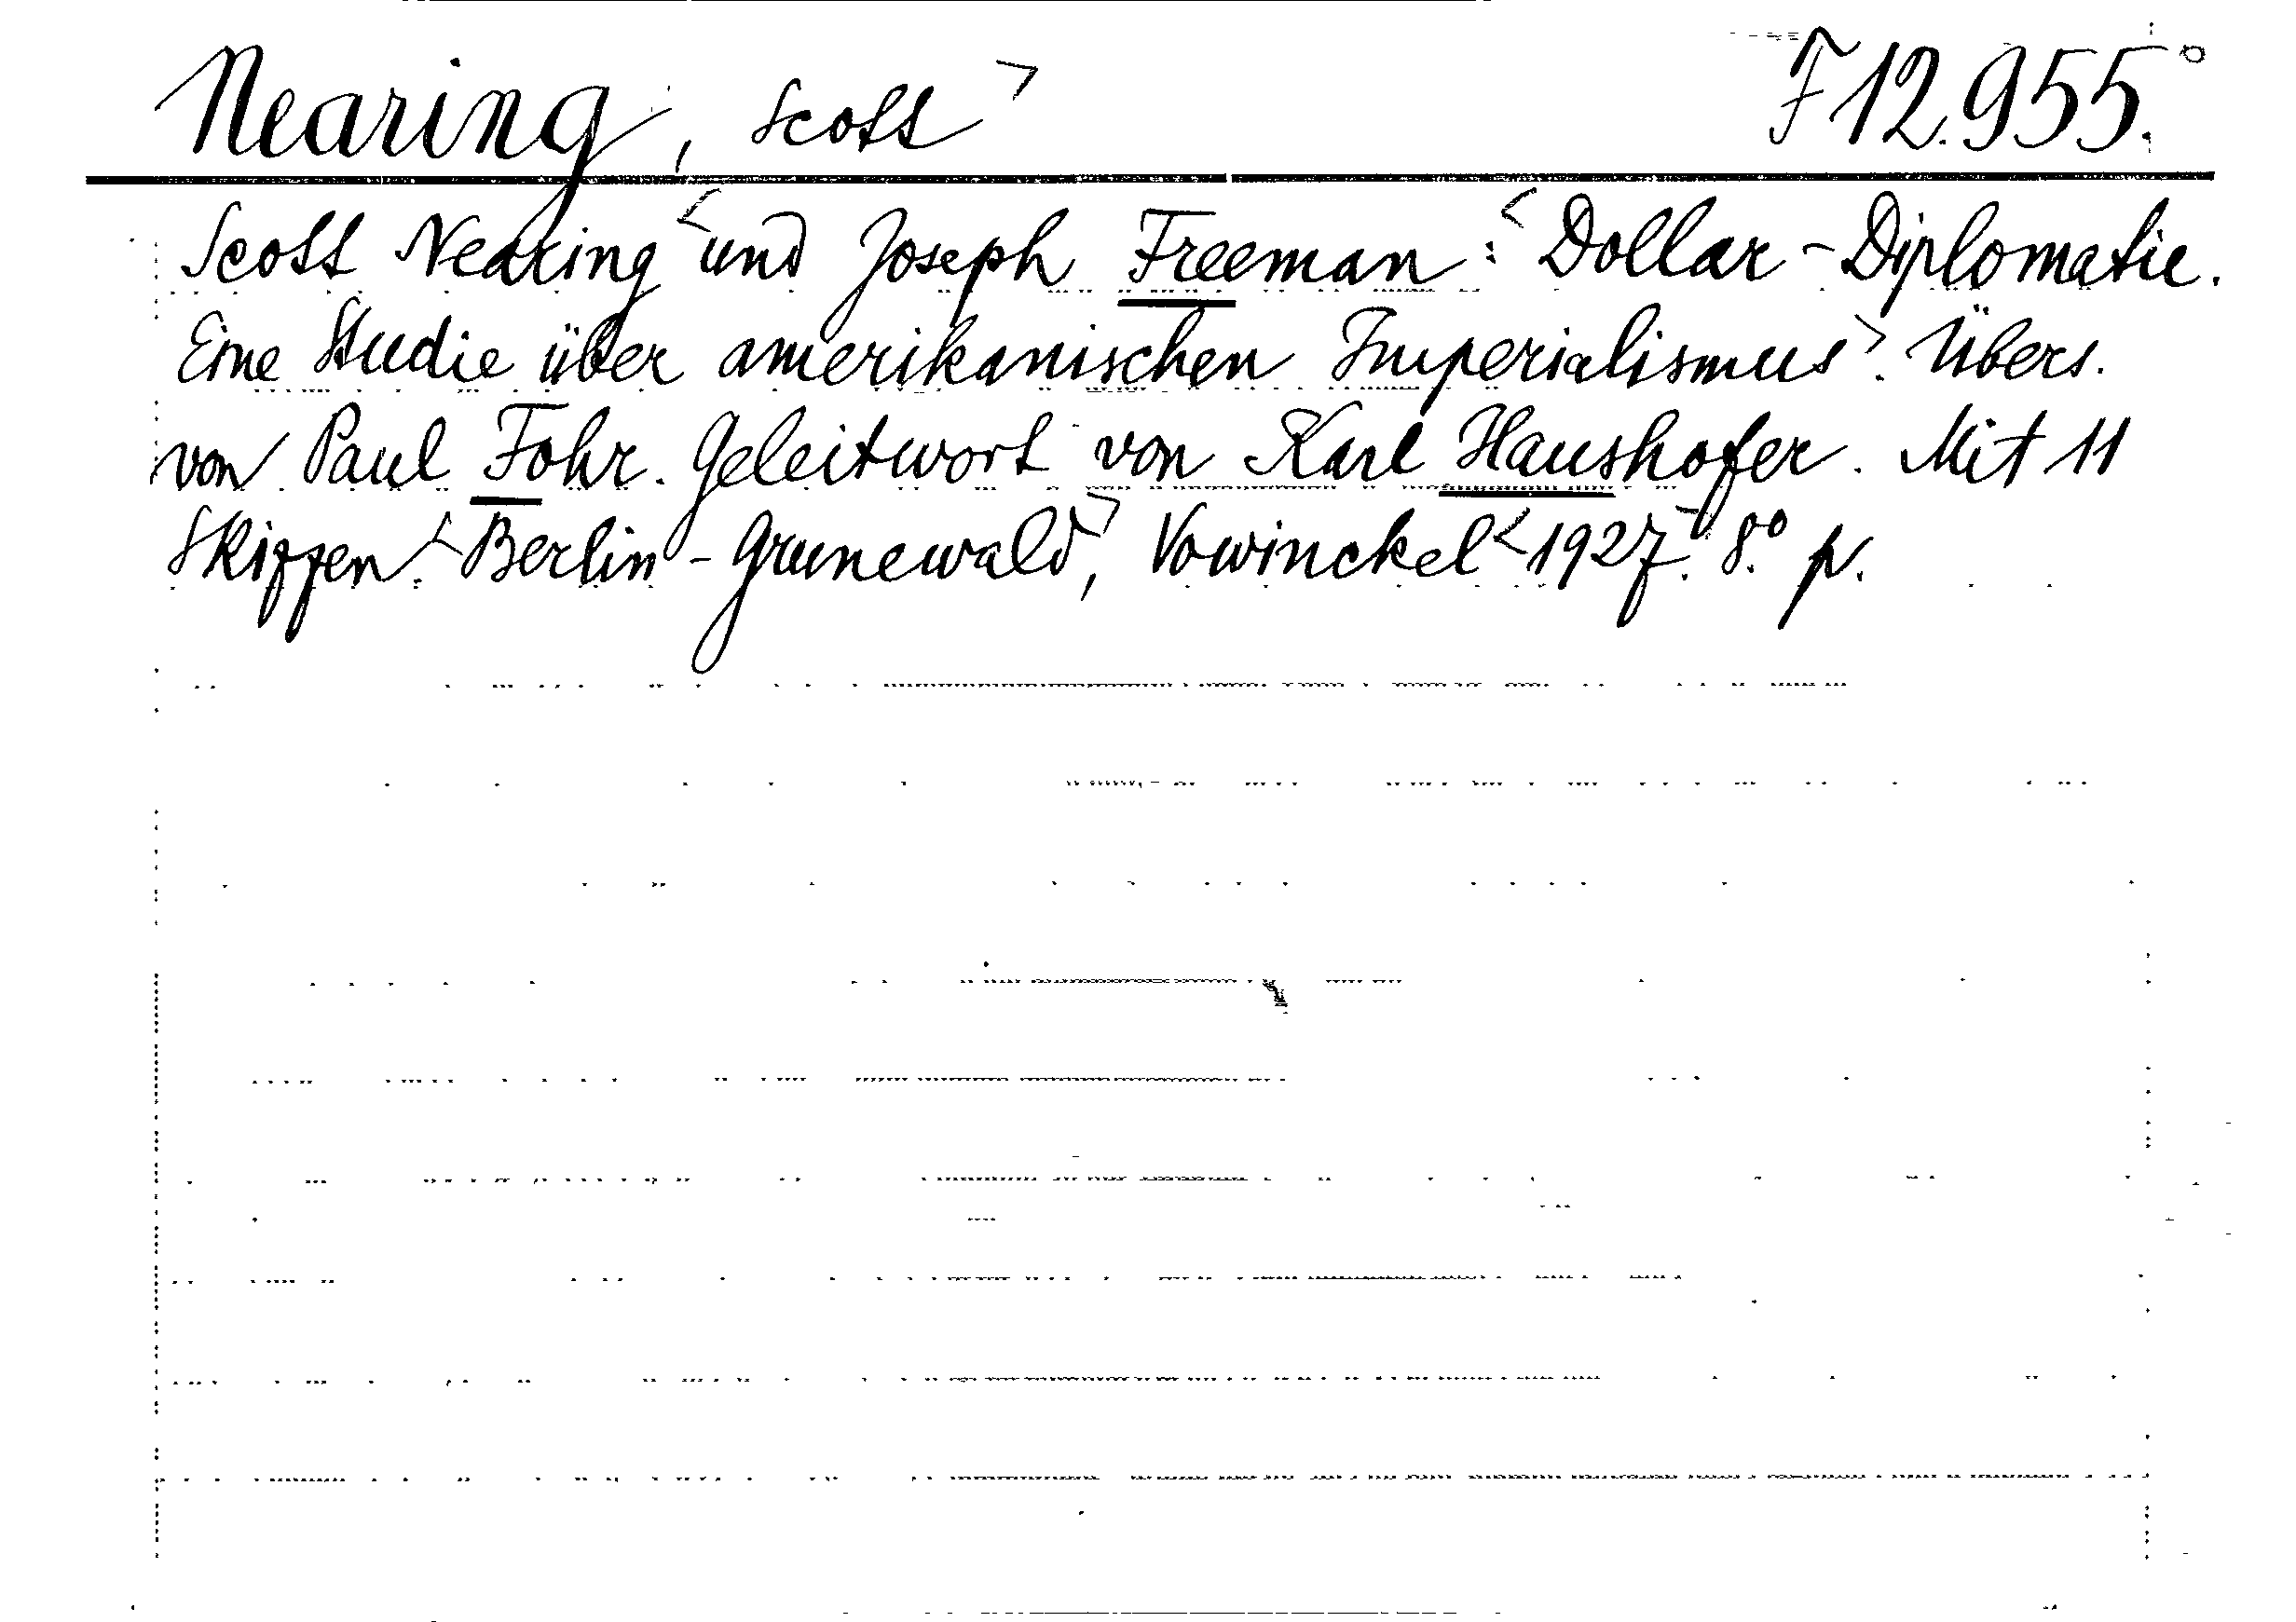 Nearing, Scott> F 12.955.°
Scott Nearing <und Joseph Freeman: <Dollar-Diplomatie.
Eine Studie über amerikanischen Imperialismus>. Übers.
von Paul Fohr. Geleitwort von Karl Haushofer. Mit 11
Skizzen. <Berlin-Grunewald>, Vowinckel <1927. 8° p.